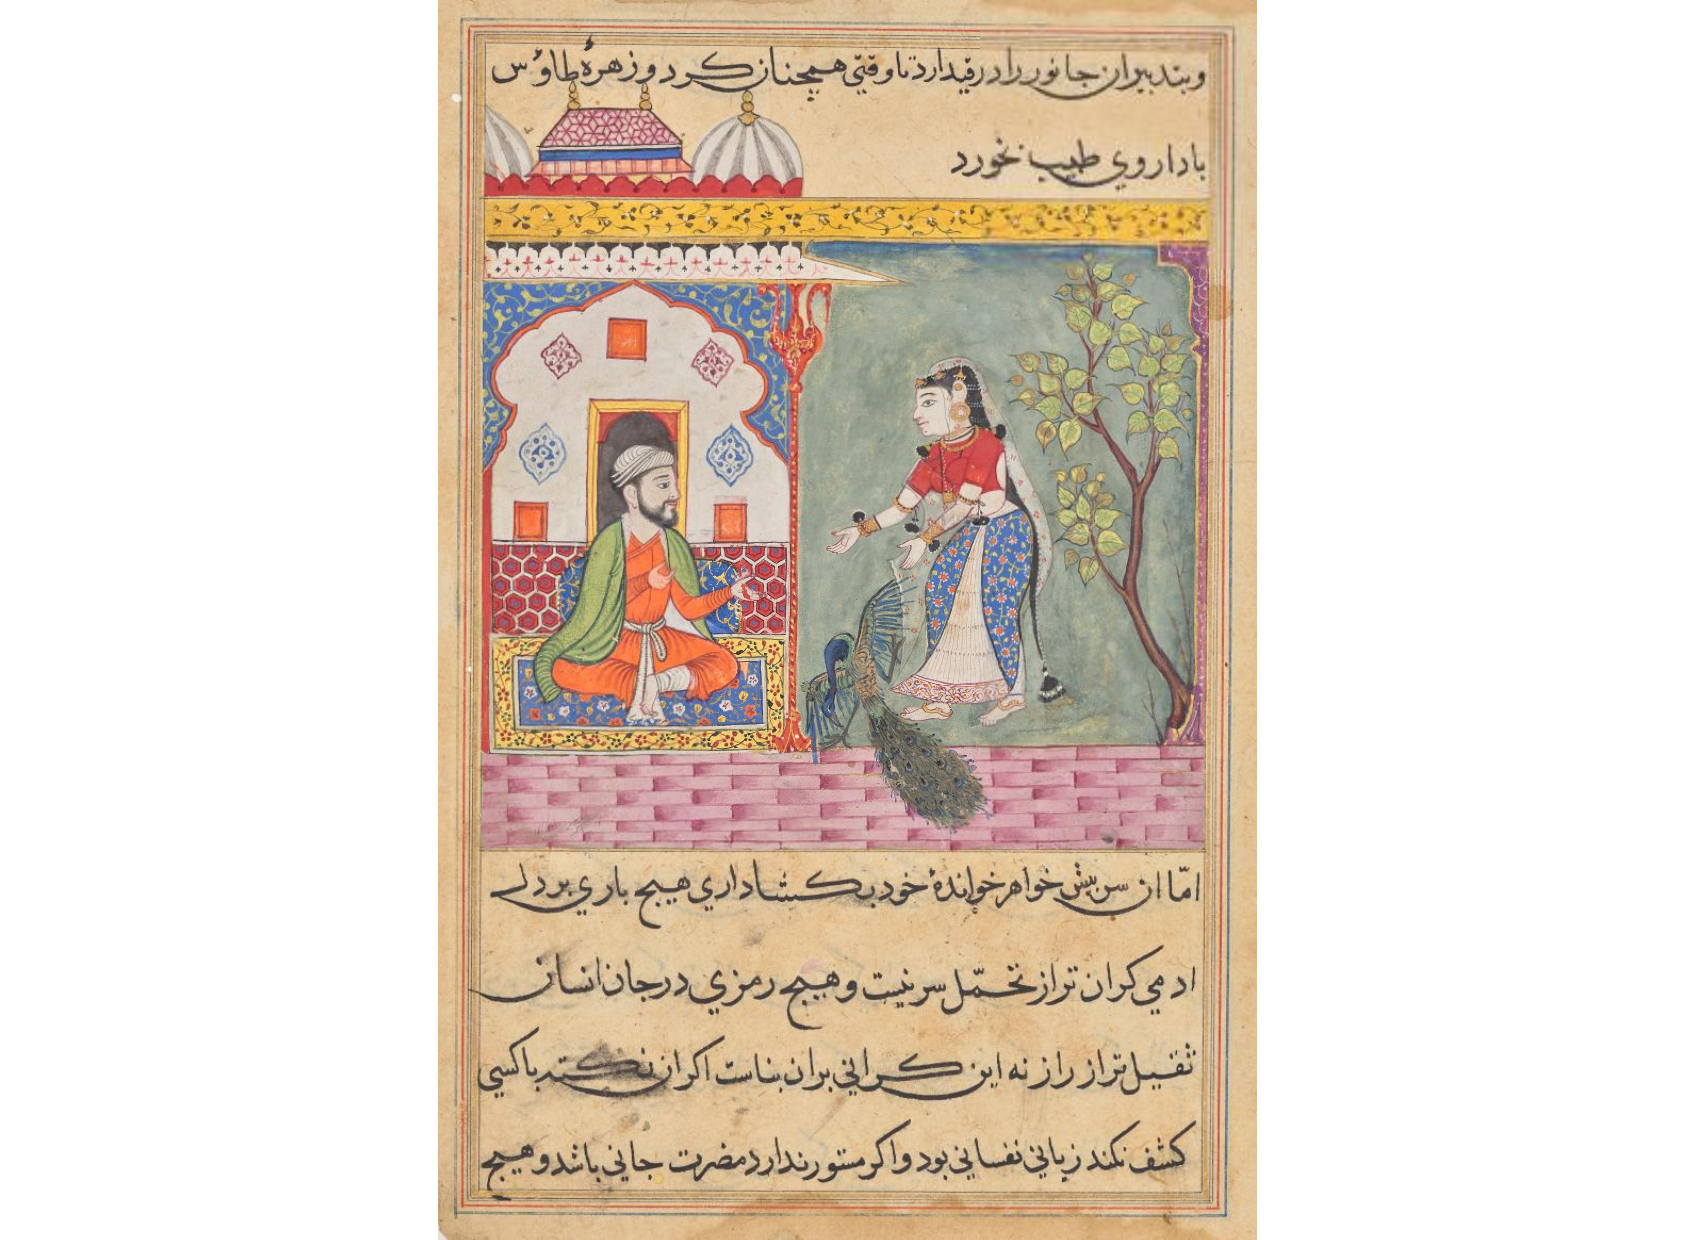 وبتدبیران جانور را در قید ارد تا وقتی همچنان کرد و زهرهٔ طاؤس
با داروي طبیب نخورد
امّا ان سر پیش خواهر خواندهٔ خود بکشاد اري هیچ باري بر دل
ادمي کران تر از تحمّل سر نیست و هیچ رمزي در جان انسان
ثقیل تر از راز نه این کراني بران بناست اکر ان نکته با کسي
کشف نکند زیاني نفساني بود و اکر مستور ندارد مضرت جاني باشد و هیچ